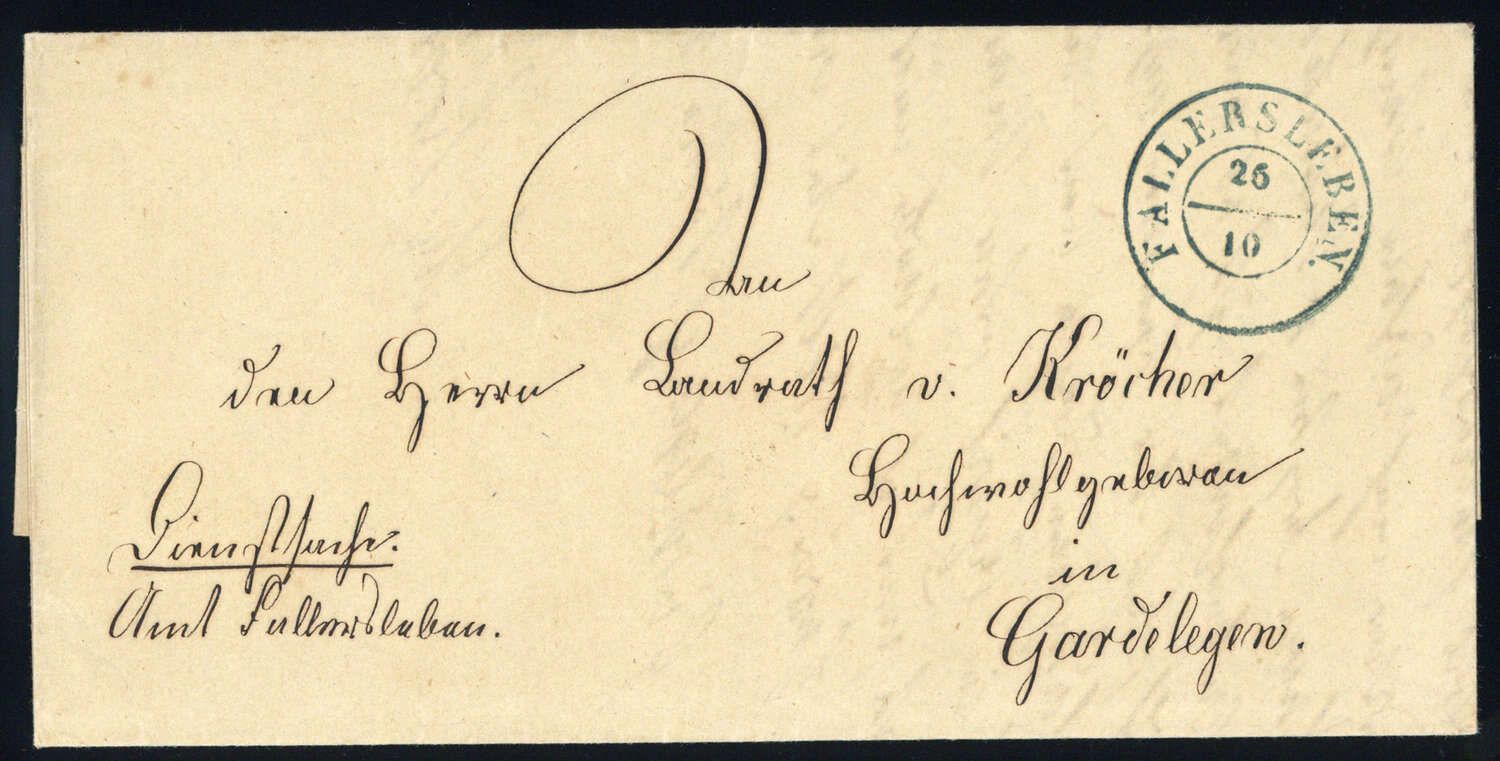 FALLERSLEBEN
26
10
An
den Herrn Landrath v. Kröcher
Hochwohlgeboren
in
Gardelegen.
Dienstsache.
Amt Fallersleben.